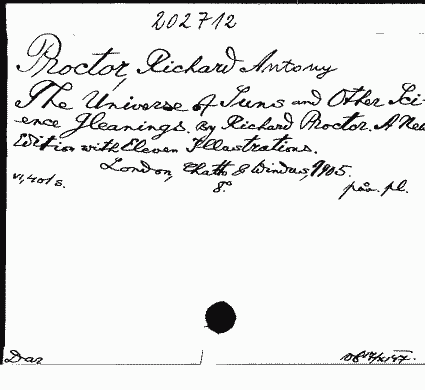 202712
Proctor, Richard Antony
The Universe of Suns and Other Sci-
ence Gleanings. By Richard Proctor. A New
Edition with Eleven Illustrations.
London, Chatto & Windus, 1905.
VI, 401 s. 8° pl.
Dar